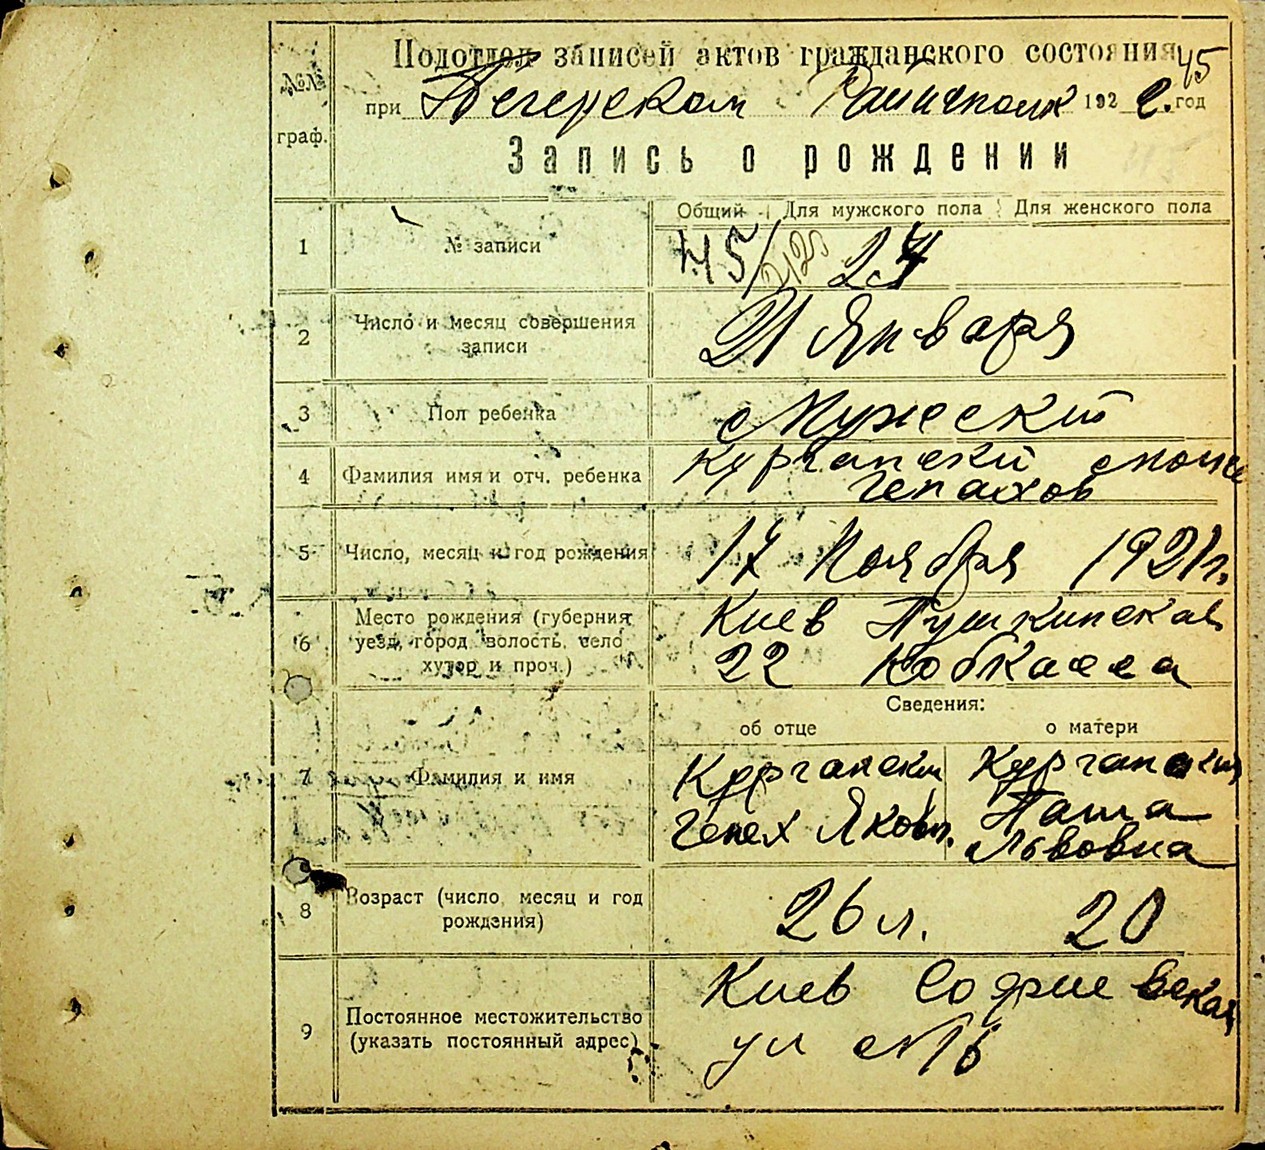 45
Подотдел записей актов гражданского состояния
при Печерском Райисполк 1922. год
№№
граф.
Запись о рождении
Общий Для мужского пола Для женского пола
1 № записи 45/ 24
2 Число и месяц совершения записи 21 Января
3 Пол ребенка Мужеский
4 Фамилия имя и отч. ребенка Курганский
Генахов
5 Число, месяц и год рождения 17 Ноября 1921г.
6 Место рождения (губерния Киев Пушкинская
уезд, город волость, село 22
хутор и проч.)
Сведения:
об отце о матери
7 Фамилия и имя Курганский Курганская
Генех Яковл. Паша
Львовна
8 Возраст (число, месяц и год 26 л. 20
рождения)
9 Постоянное местожительство Киев Софиевская
(указать постоянный адрес) ул №6